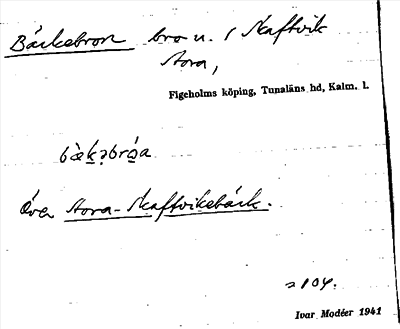 Bäckebron bro n. / Skaftvik
Stora,
Figeholms köping, Tunaläns hd, Kalm. l.
bæ̀k̬əbrώ̨a
över Stora-Skaftviksbäck.
a 104.
Ivar Modéer 1941